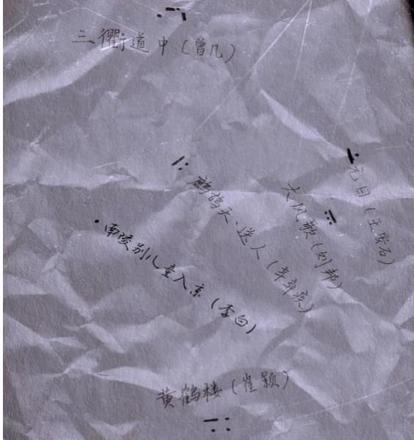 三衢道中（曾几）
元日（王安石）
大风歌（刘邦）
鹧鸪天·送人（辛弃疾）
南陵别儿童入京（李白）
黄鹤楼（崔颢）